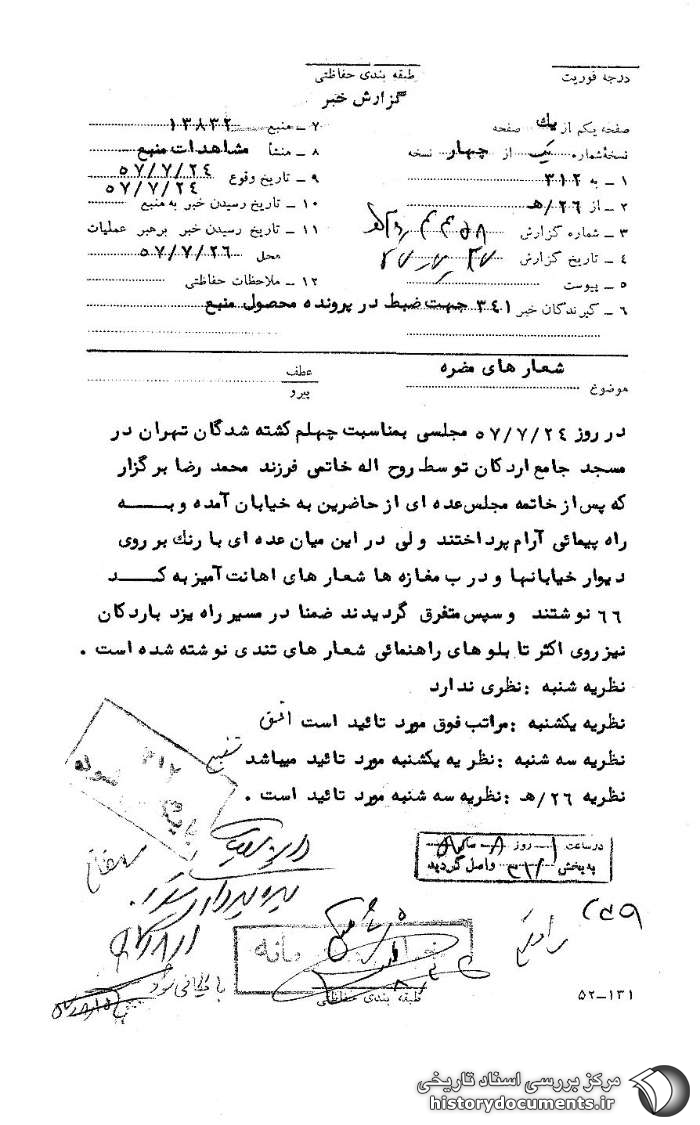 درجه فوریت
طبقه بندی حفاظتی
گزارش خبر
صفحه یکم از یك صفحه
نسخه شماره یك از چهار نسخه
۱ ـ به ۳۱۲
۲ ـ از ۲۶/هـ
۳ ـ شماره گزارش
۴ ـ تاریخ گزارش
۵ ـ پیوست
۶ ـ گیرندگان خبر ۳۴۱ جهت ضبط در پرونده محصول منبع
۷ ـ منبع ۱۳۸۳۲
۸ ـ منشأ مشاهدات منبع
۹ ـ تاریخ وقوع ۵۷/۷/۲۴
۱۰ ـ تاریخ رسیدن خبر به منبع ۵۷/۷/۲۴
۱۱ ـ تاریخ رسیدن خبر برهبر عملیات
محل ۵۷/۷/۲۶
۱۲ ـ ملاحظات حفاظتی
موضوع شعار های مضره
عطف
پیرو
در روز ۵۷/۷/۲۴ مجلسی بمناسبت چهلم کشته شدگان تهران در
مسجد جامع اردکان توسط روح اله خاتمی فرزند محمد رضا برگزار
که پس از خاتمه مجلس عده ای از حاضرین به خیابان آمده و بـــه
راه پیمائی آرام پرداختند ولی در این میان عده ای با رنك بر روی
دیوار خیابانها و درب مغازه ها شعار های اهانت آمیز به کـــد
۶۶ نوشتند و سپس متفرق گردیدند ضمنا در مسیر راه یزد باردکان
نیز روی اکثر تابلو های راهنمائی شعار های تندی نوشته شده است .
نظریه شنبه : نظری ندارد
نظریه یکشنبه : مراتب فوق مورد تائید است افق
نظریه سه شنبه : نظریه یکشنبه مورد تائید میباشد
نظریه ۲۶/هـ : نظریه سه شنبه مورد تائید است .
در ساعت روز
به بخش ۳۱۲ واصل گردید
بایگانی شود
طبقه بندی حفاظتی
۵۲-۱۳۱
مرکز بررسی اسناد تاریخی
historydocuments.ir